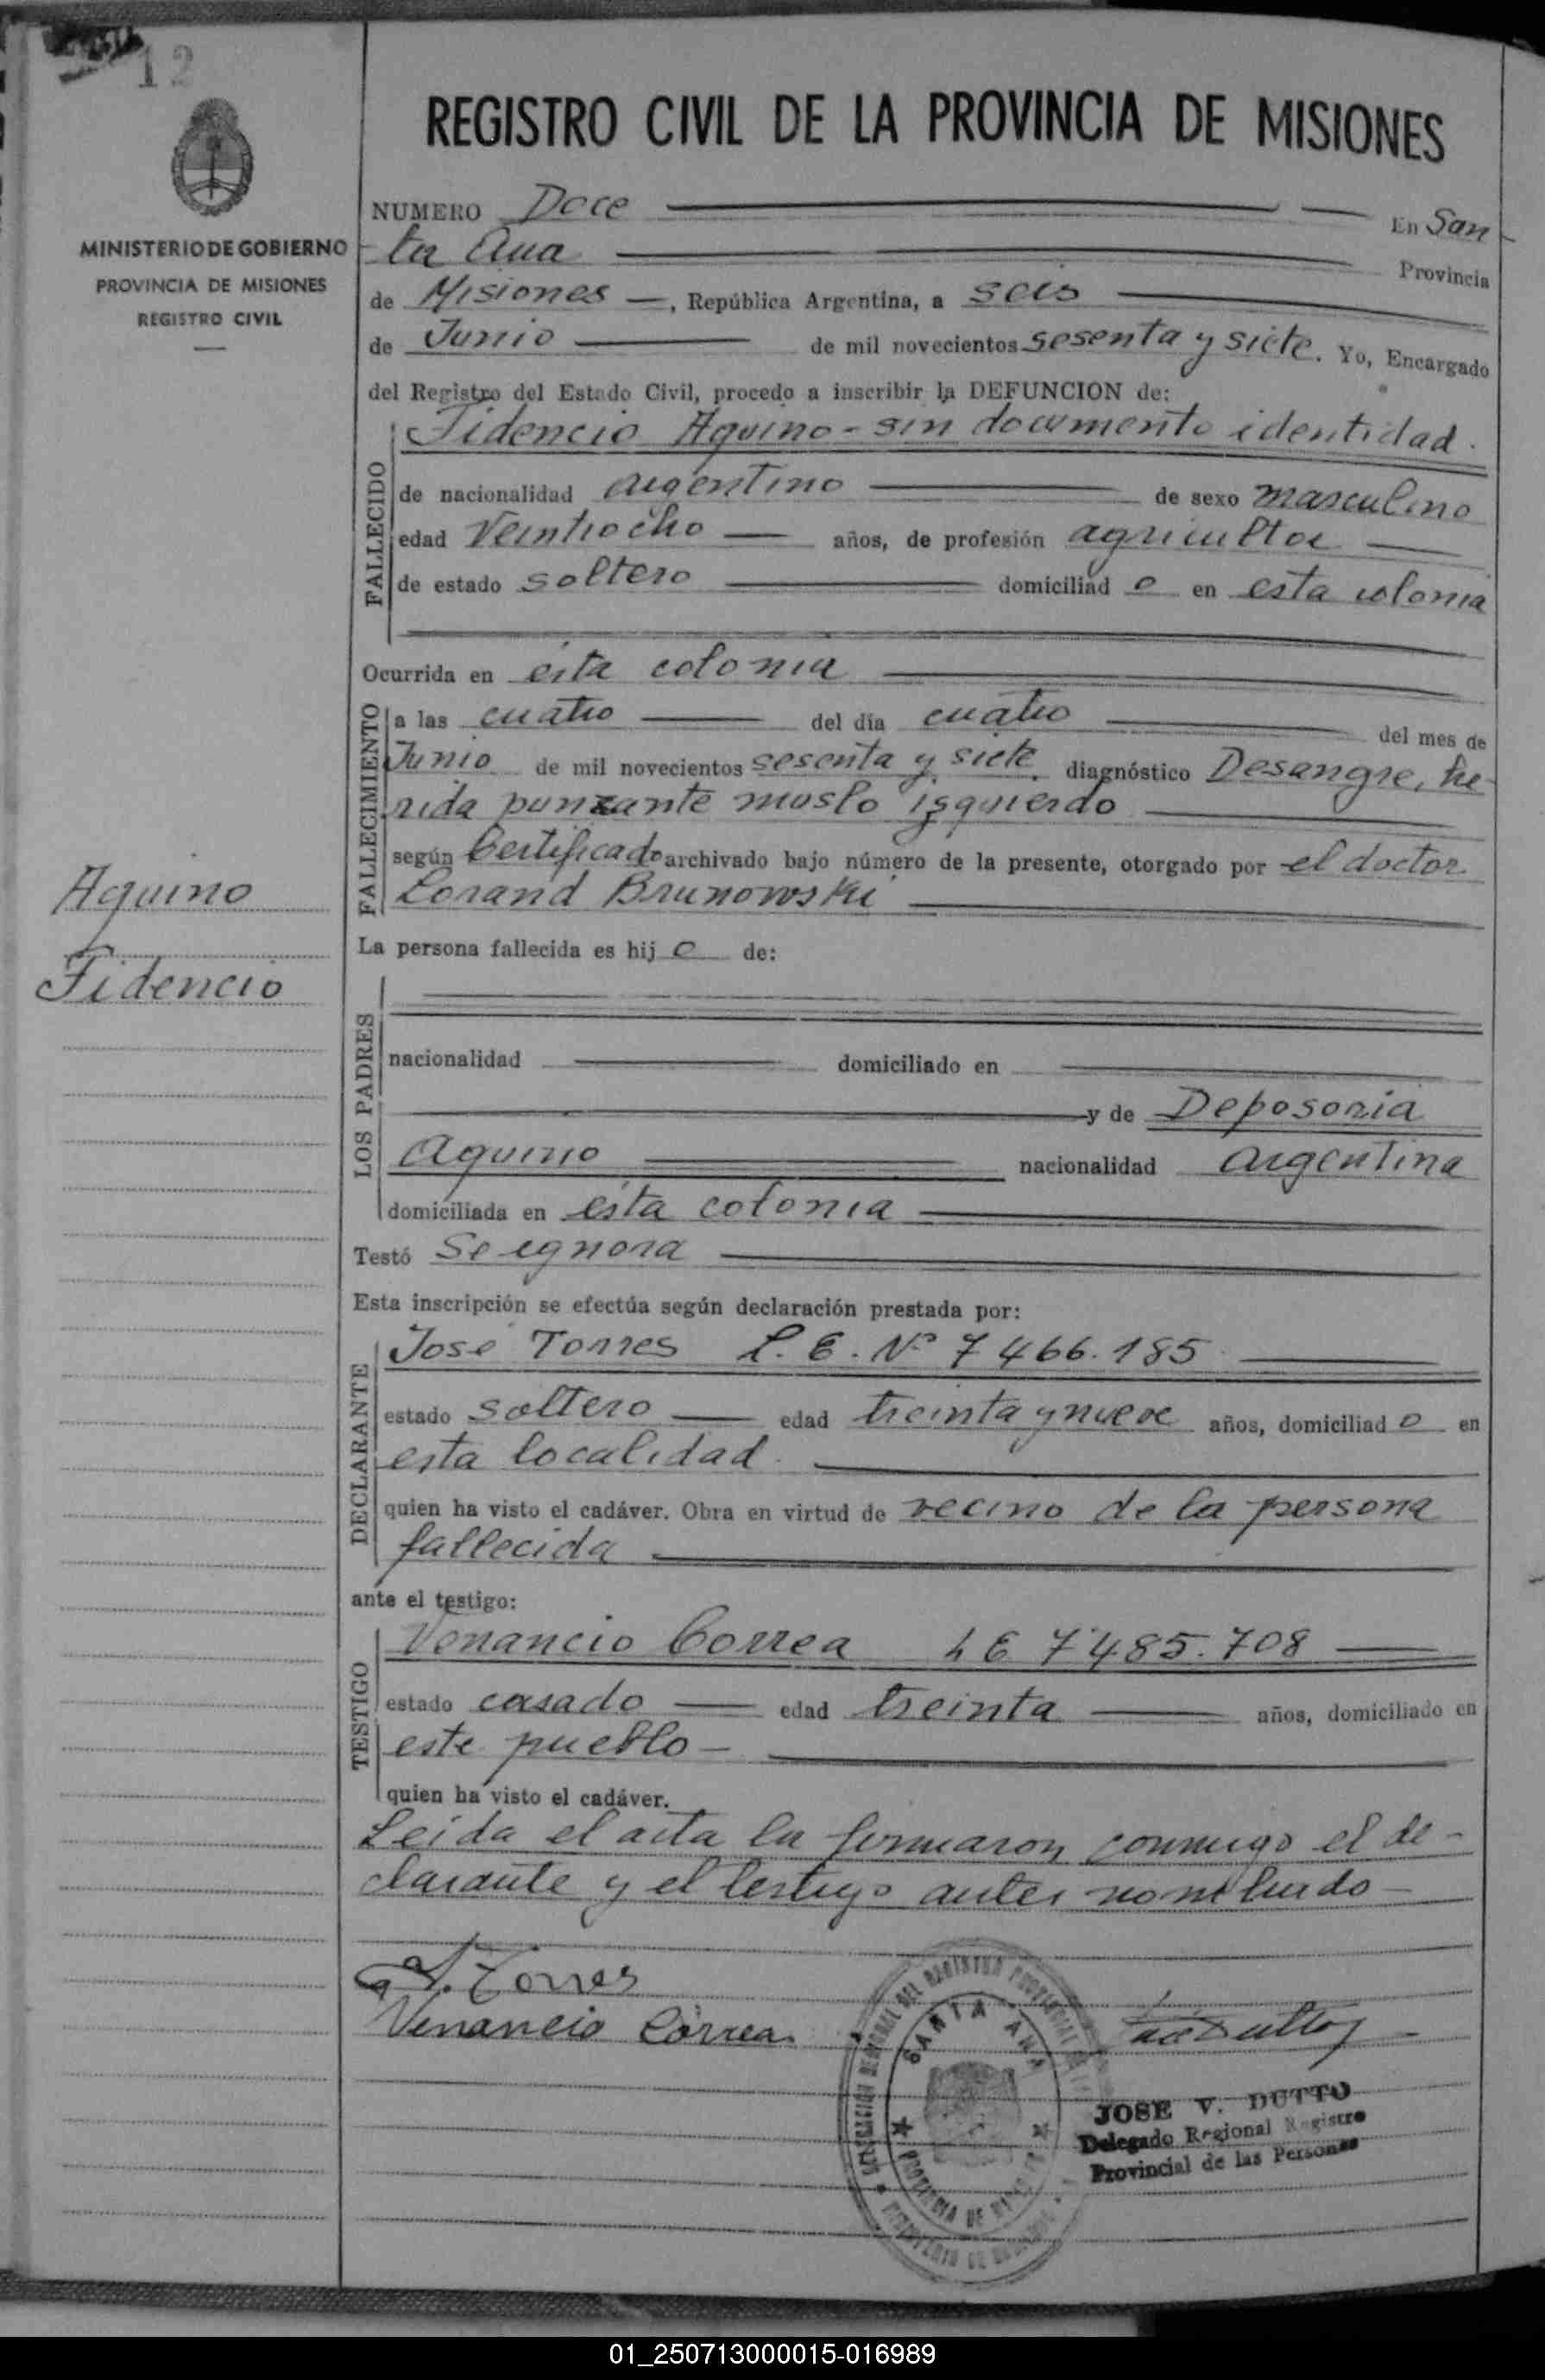 12
REGISTRO CIVIL DE LA PROVINCIA DE MISIONES
MINISTERIO DE GOBIERNO
PROVINCIA DE MISIONES
REGISTRO CIVIL
NUMERO Doce En San
ta Ana Provincia
de Misiones, República Argentina, a seis
de Junio de mil novecientos sesenta y siete. Yo, Encargado
del Registro del Estado Civil, procedo a inscribir la DEFUNCION de:
FALLECIDO
Fidencio Aquino - sin documento identidad.
de nacionalidad argentino de sexo masculino
edad Veintiocho años, de profesión agricultor
de estado soltero domiciliad o en esta colonia
Ocurrida en esta colonia
FALLECIMIENTO
a las cuatro del día cuatro del mes de
Junio de mil novecientos sesenta y siete diagnóstico Desangre, he-
rida punzante muslo izquierdo
según Certificado archivado bajo número de la presente, otorgado por el doctor
Lorand Brunowski
Aquino
Fidencio
La persona fallecida es hij o de:
LOS PADRES
nacionalidad domiciliado en
y de Deposoria
Aquino nacionalidad argentina
domiciliada en esta colonia
Testó Se ignora
Esta inscripción se efectúa según declaración prestada por:
DECLARANTE
José Torres L. E. Nº 7466.185
estado soltero edad treinta y nueve años, domiciliad o en
esta localidad.
quien ha visto el cadáver. Obra en virtud de vecino de la persona
fallecida
ante el testigo:
TESTIGO
Venancio Correa L E 7485.708
estado casado edad treinta años, domiciliado en
este pueblo
quien ha visto el cadáver.
Leída el acta la firmaron conmigo el de-
clarante y el testigo antes nombrado
J. Torres
Venancio Correa
SANTA ANA
PROVINCIA DE
JOSE V. DUTTO
Delegado Regional Registro
Provincial de las Personas
01_250713000015-016989